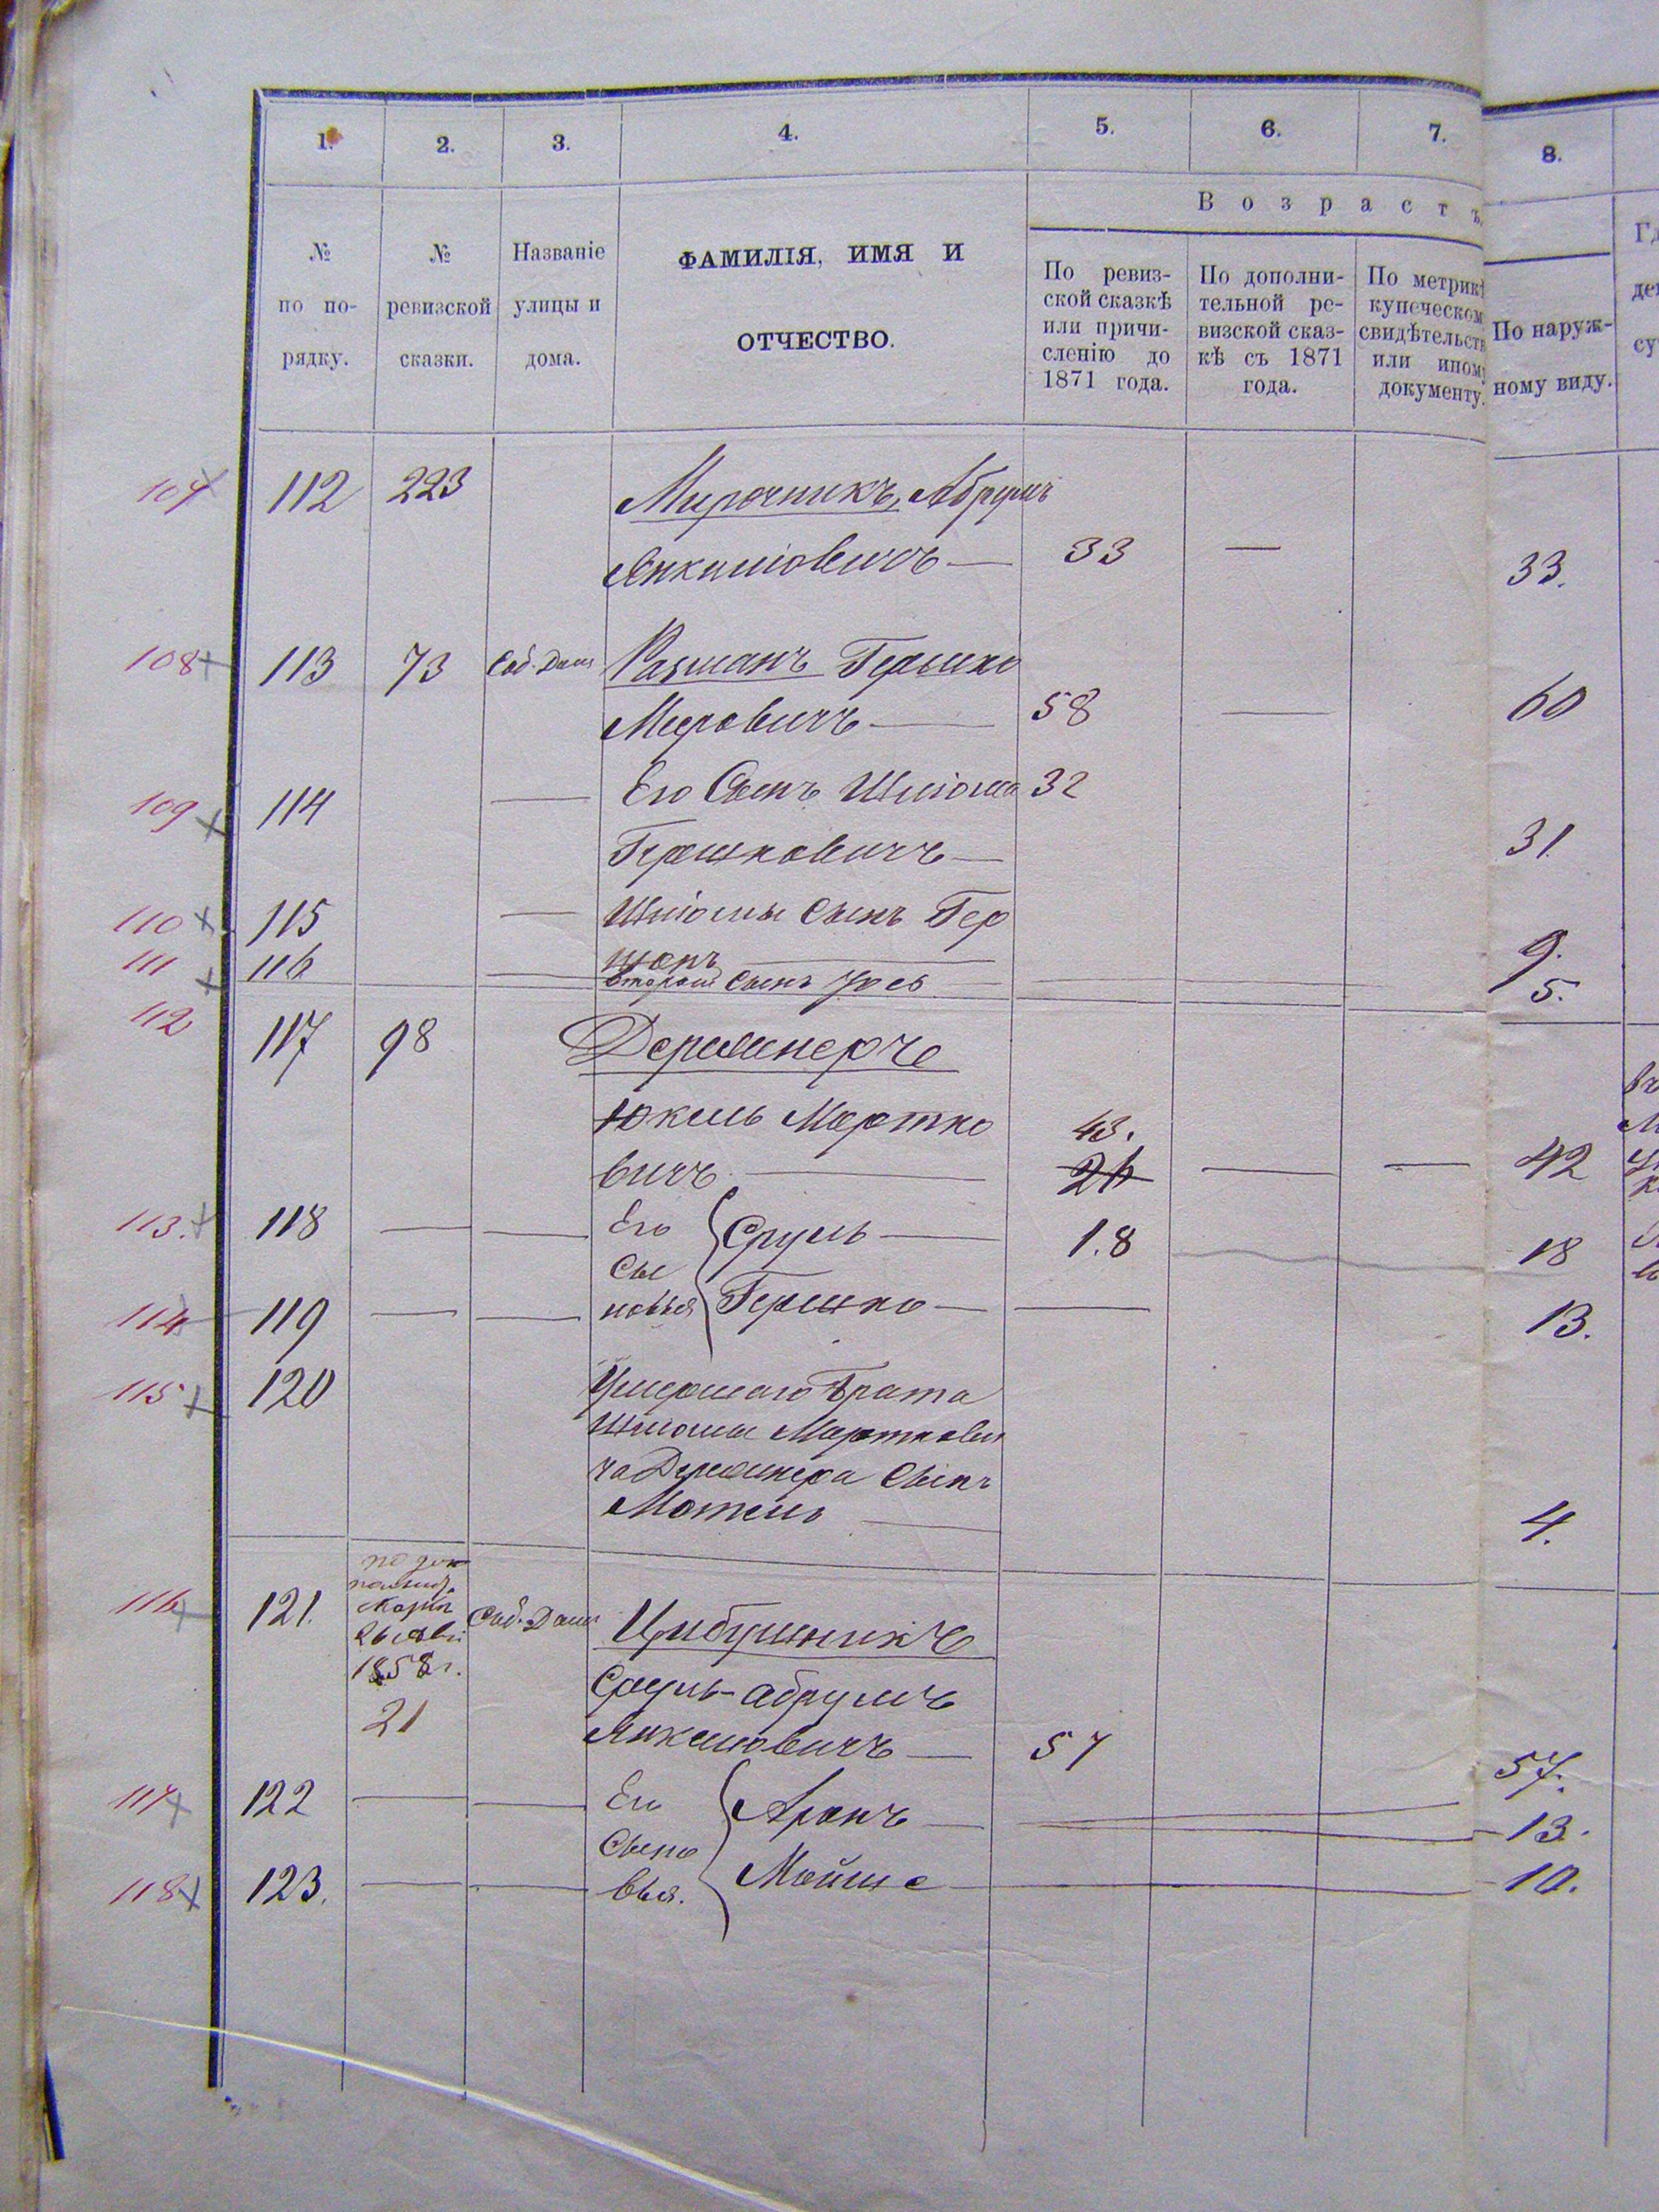 1. 2. 3. 4. 5. 6. 7. 8.
Возрастъ.
№ по по-рядку.
№ ревизской сказки.
Названіе улицы и дома.
ФАМИЛІЯ, ИМЯ И ОТЧЕСТВО.
По ревиз-ской сказкѣ или причи-сленію до 1871 года.
По дополни-тельной ре-визской сказ-кѣ съ 1871 года.
По метрикѣ купеческом свидѣтельств или ином документу.
По наруж-ному виду.
107 112 223 Мирочникъ, Абрумъ
Янкелiовичъ — 33 — 33.
108 113 73 Соб. Домъ Разманъ Гершко
Меровичъ — 58 — 60
109 114 — Его Сынъ Шліома 32
Гершковичъ — 31
110 115 — Шліомы Сынъ Гер
шонъ — 9.
111 116 — второй Сынъ Іось — 5.
112 117 98 Дерменеръ
Юкель Мортко 43.
вичъ — 26 — — 42
113. 118 — — Его Сруль — 1.8 18
Сы
114 119 — — новья Гершко — — 13.
115 120 Умершаго Брата
Шліомы Морткови
ча Дерменера Сынъ
Мотель — 4.
116 121. по до
полнит.
1858 г.
21
Соб. Домъ Цибушникъ
Сруль-Абрумъ
Янкелiовичъ — 57 57.
117 122 — — Его Аронъ — 13.
Сыно
118 123. — — вья. Мойше — 10.